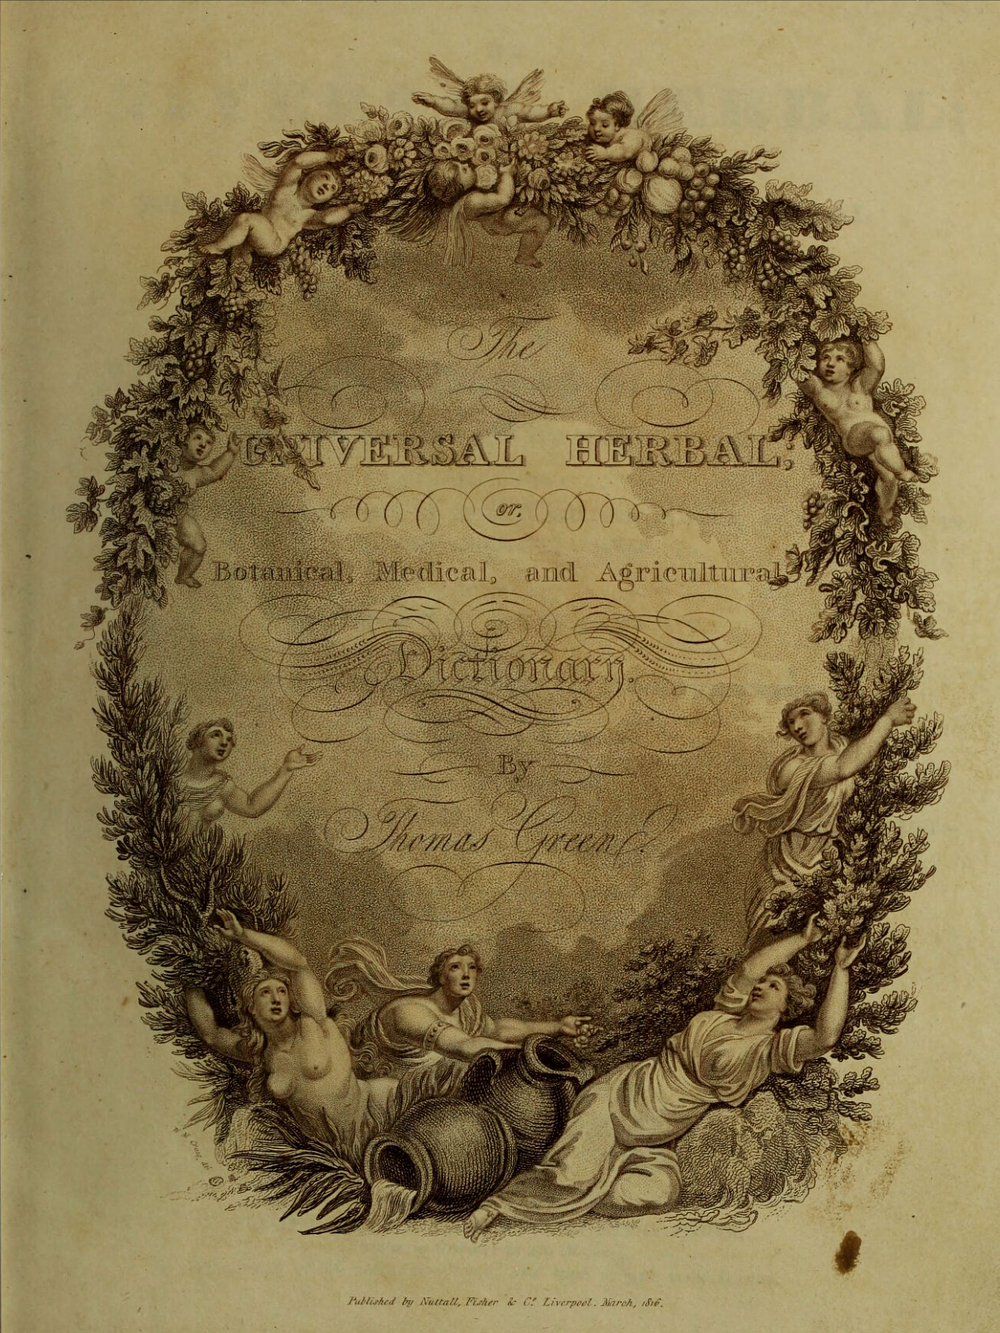 The
UNIVERSAL HERBAL;
or,
Botanical, Medical, and Agricultural
Dictionary.
By
Thomas Green.
Published by Nuttall, Fisher & Co. Liverpool. March, 1816.